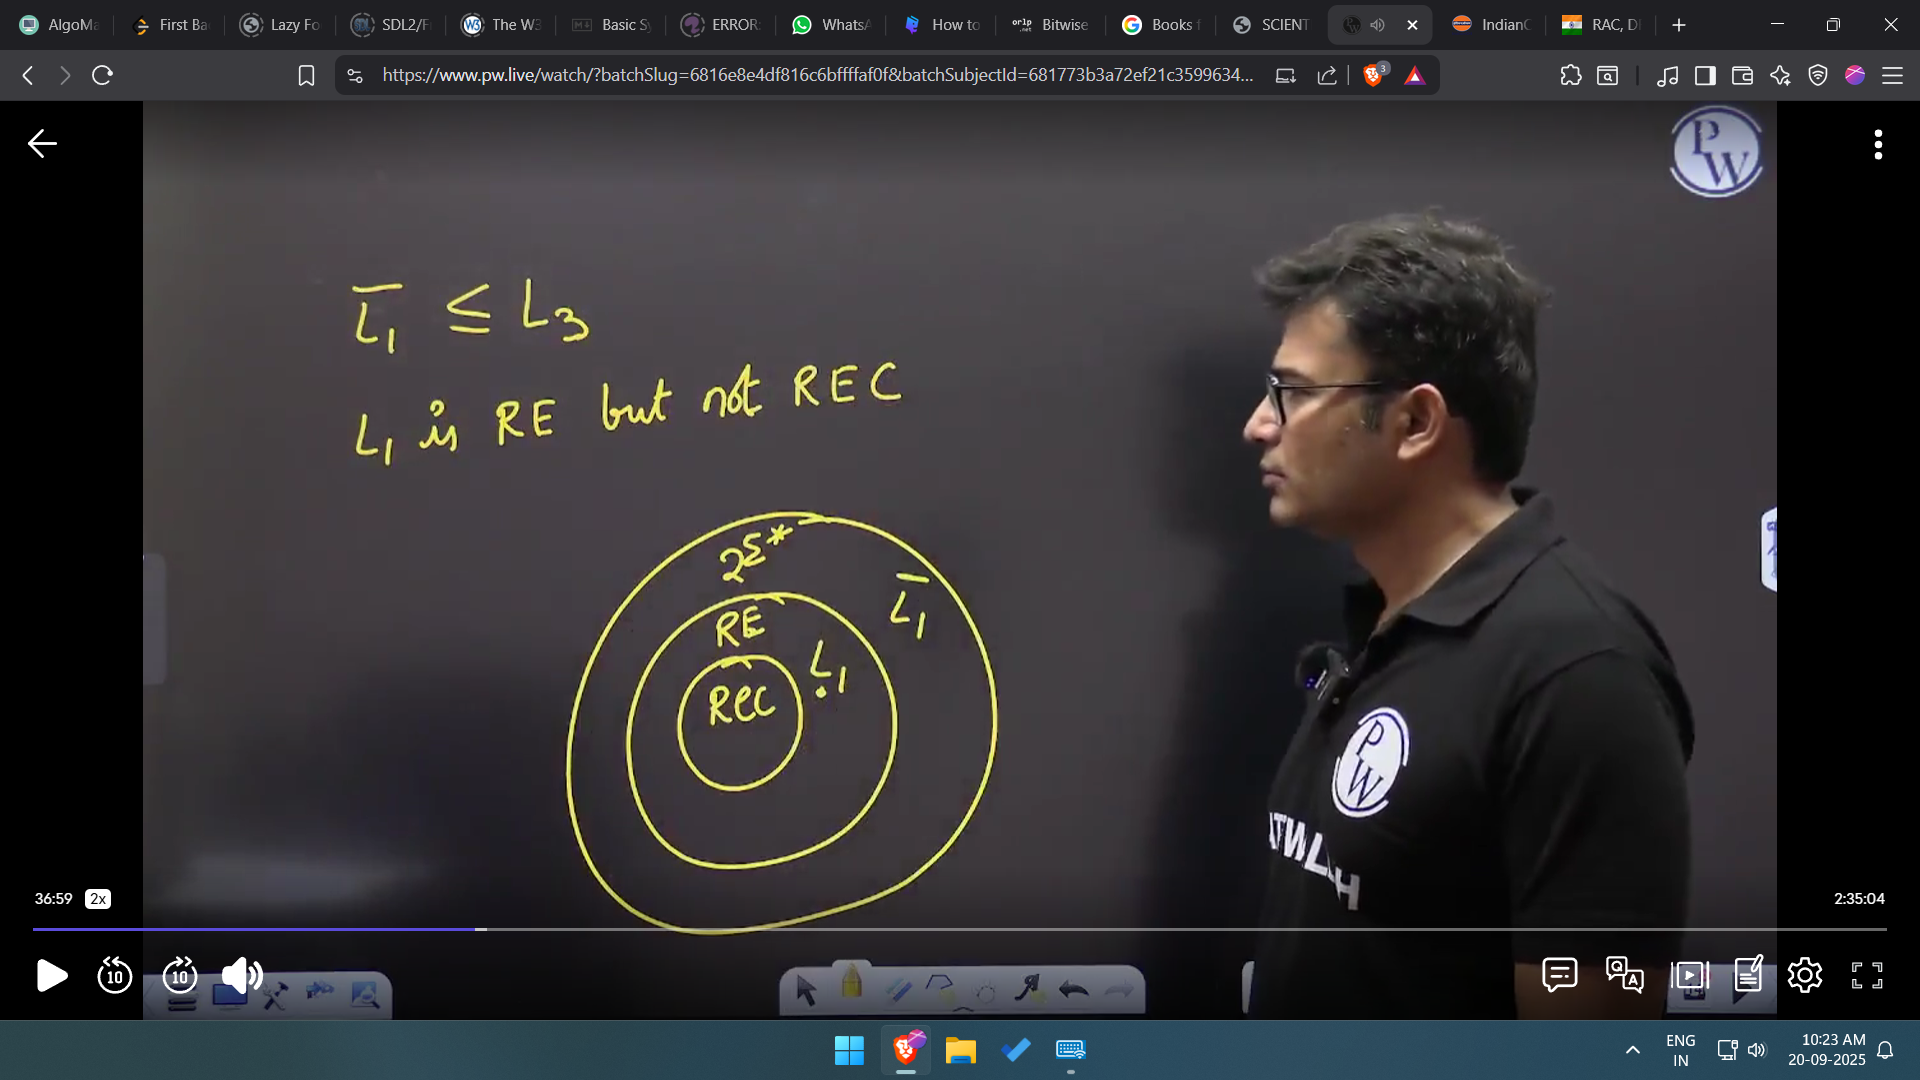 AlgoMa
First Ba
Lazy Fo
SDL2/F
The W3
Basic Sy
ERROR:
WhatsA
How to
Bitwise
Books f
SCIENT
IndianC
RAC, D
https://www.pw.live/watch/?batchSlug=6816e8e4df816c6bffffaf0f&batchSubjectId=681773b3a72ef21c3599634...
3
PW
L̅₁ ≤ L₃
L₁ is RE but not REC
2^Σ*
L̅₁
RE
L₁
REC
PW
ATWALLAH
36:59 2x
2:35:04
10
10
ENG
IN
10:23 AM
20-09-2025